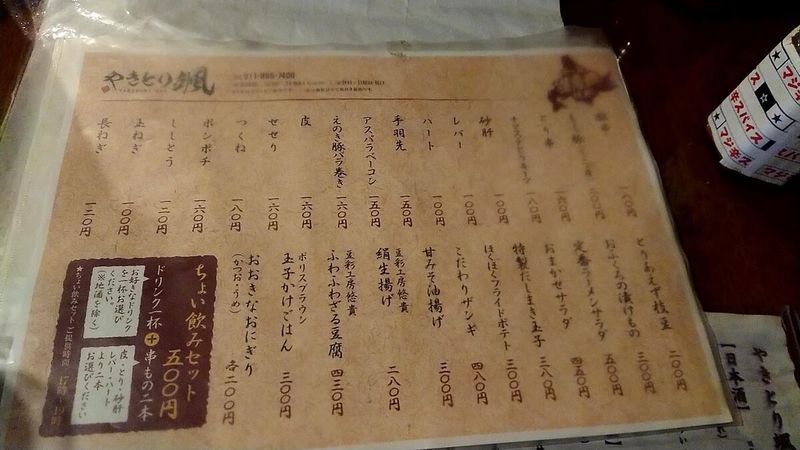 やきとり 颯
一八〇円
二〇〇円
とり串 一六〇円
一八〇円
砂肝 一〇〇円
レバー 一〇〇円
ハート 一〇〇円
手羽先 一五〇円
アスパラベーコン 一五〇円
えのき豚バラ巻き 一六〇円
皮 一六〇円
せせり 一六〇円
つくね 一八〇円
ボンボチ 一六〇円
ししとう 一二〇円
玉ねぎ 一〇〇円
長ねぎ 一二〇円
とりあえず枝豆 二〇〇円
おふくろの漬けもの 三〇〇円
定番ラーメンサラダ 五五〇円
おまかせサラダ 四五〇円
特製だしまき玉子 三八〇円
ほくほくフライドポテト 三〇〇円
こだわりザンギ 四八〇円
甘みそ油揚げ 三〇〇円
豆彩工房悠貴
絹生揚げ 二八〇円
豆彩工房悠貴
ふわふわざる豆腐 四三〇円
ボリスブラウン
玉子かけごはん 三〇〇円
おおきなおにぎり
(かつお・うめ) 各二〇〇円
ちょい飲みセット
五〇〇円
ドリンク一杯+串もの二本
お好きなドリンク
を一杯お選び
ください。
(※地酒を除く)
皮・とり・砂肝
レバー・ハート
より二本
お選びください
★ちょい飲みセットご提供時間 17時 19時
やきとり 颯
【日本酒】
マジキスパイス